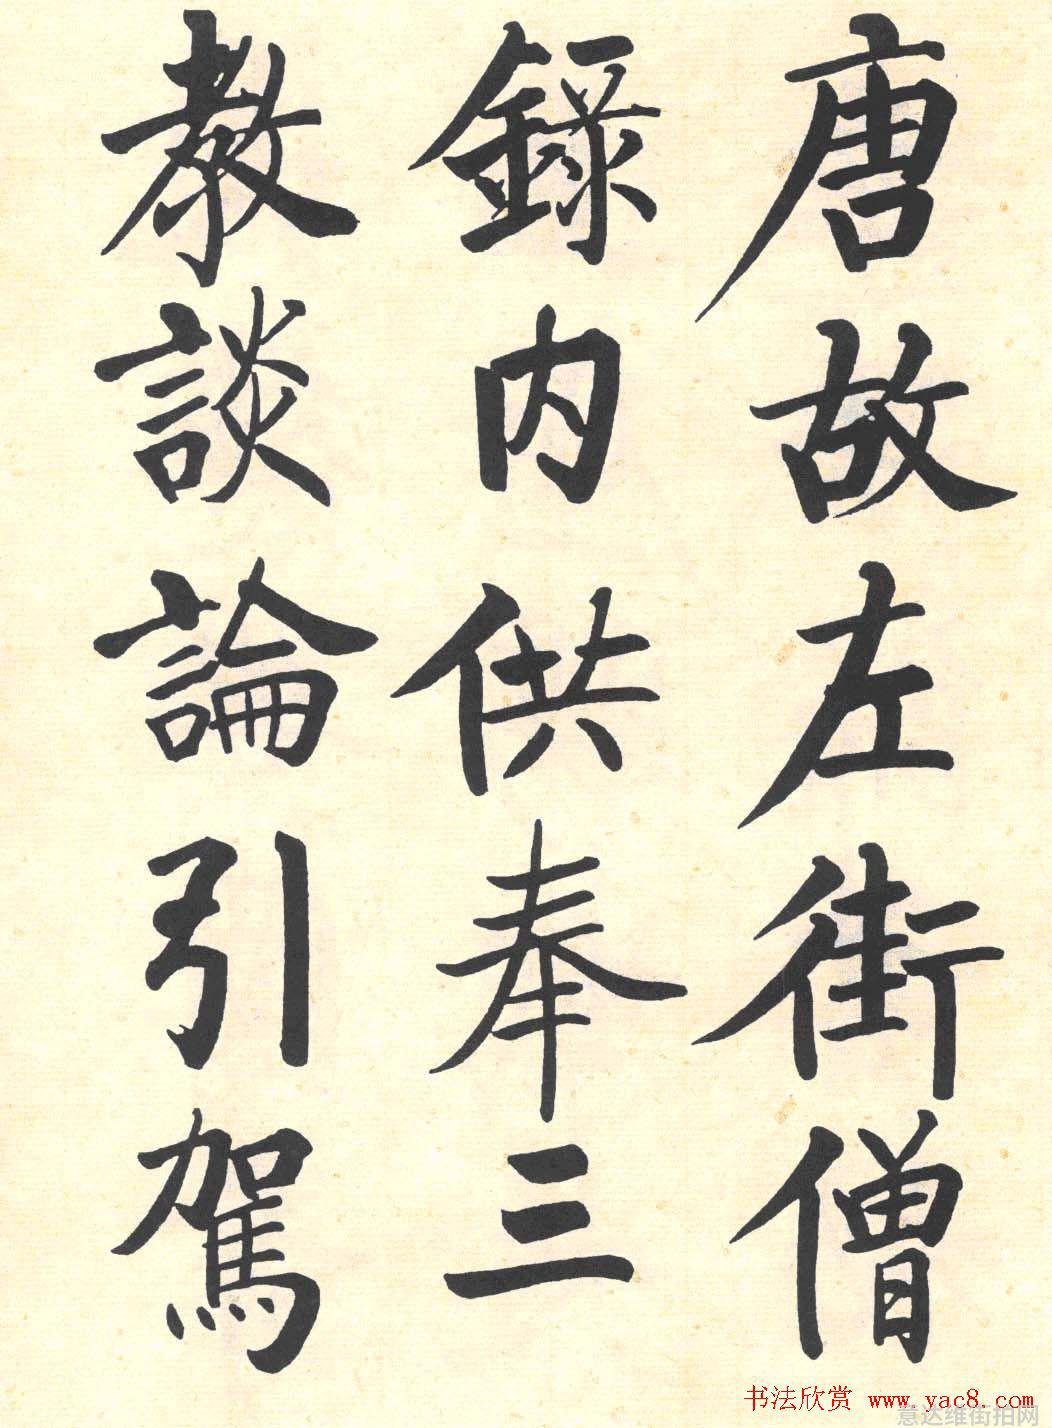 唐故左街僧
錄内供奉三
教談論引駕
书法欣赏 www.yac8.com
意达维街拍网